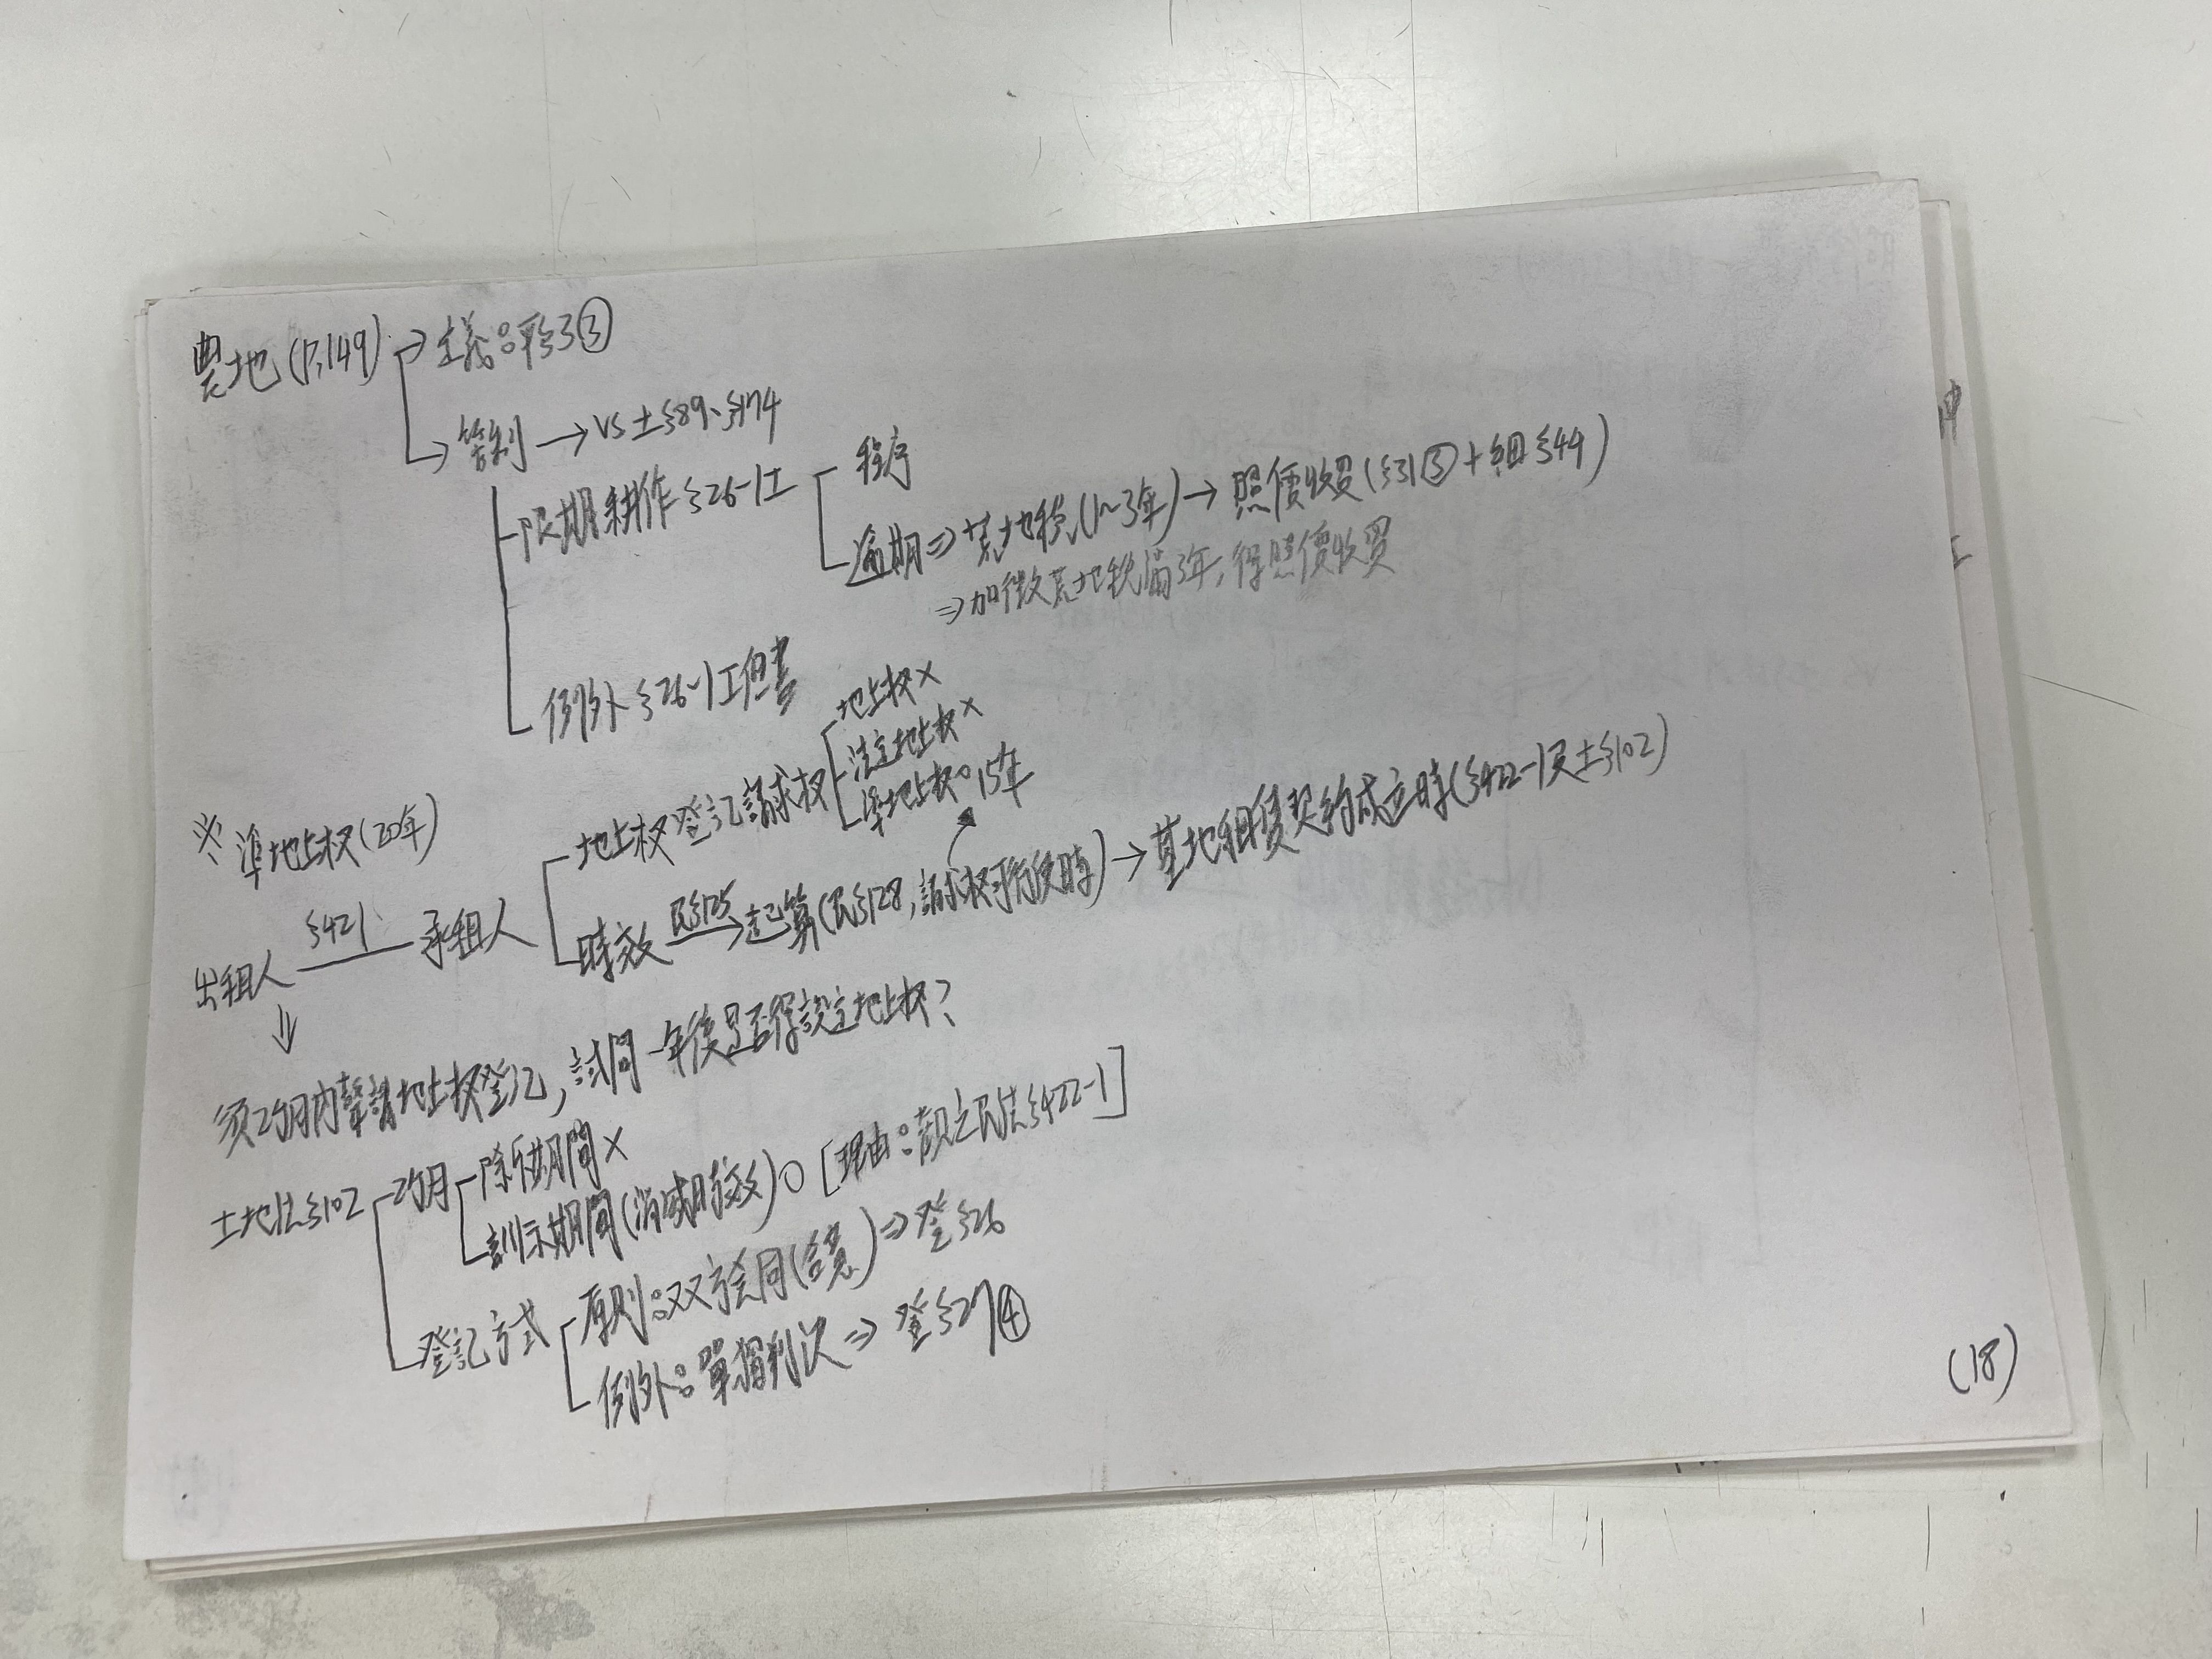 農地(P.149) → 定義:平§3③
→ 管制 → VS 土§89、§174
限期耕作§26-1I
程序
逾期⇒荒地稅(1~3年)→照價收買(§31③+細§44)
⇒加徵荒地稅滿3年,得照價收買
例外§26-1I但書
※準地上权(20年)
出租人 §421 承租人
地上权登記請求权
地上权×
法定地上权×
準地上权:15年
時效 民§125→起算(民§128,請求权可行使時)→基地租賃契約成立時(§422-1及土§102)
⇓
須2個月內聲請地上权登記,試問一年後是否得設定地上权?
土地法§102
2個月
除斥期間×
訓示期間(消滅時效)○[理由:觀之民法§422-1]
登記方式
原則:双方會同(合意)⇒登§26
例外:單獨判決⇒登§27④
(18)